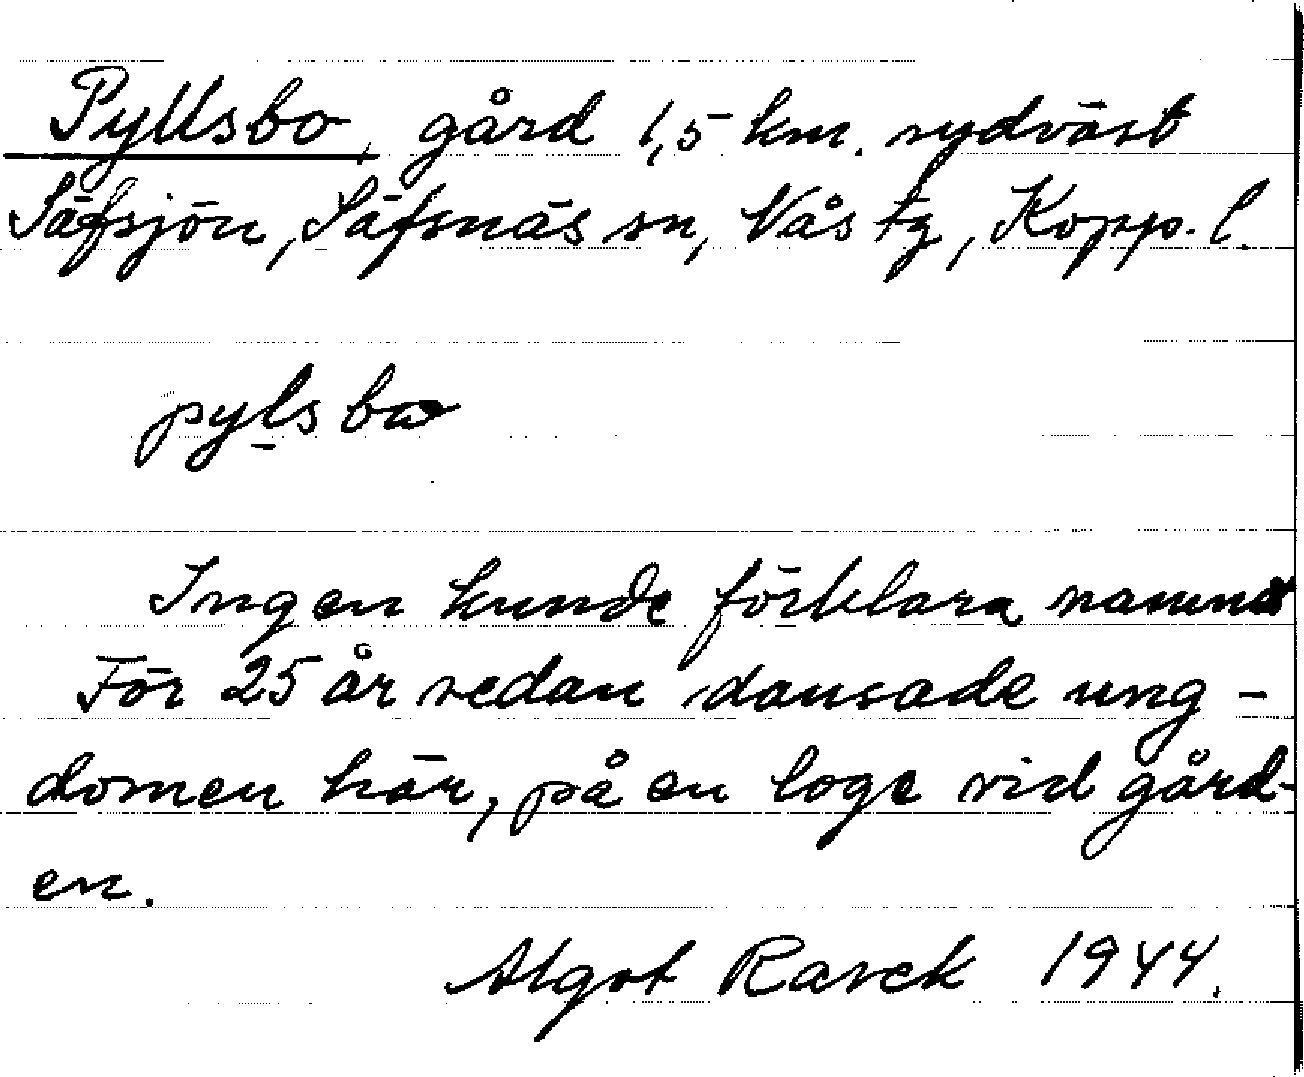 Pyllsbo, gård 1,5 km. sydväst
Säfsjön, Säfsnäs sn, Nås tg, Kopp. l.
pylsbo
Ingen kunde förklara namnet
För 25 år sedan dansade ung-
domen här, på en loge vid gård-
en.
Algot 1944.